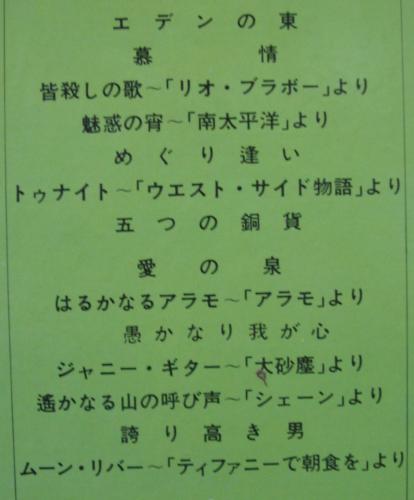 エデンの東
慕情
皆殺しの歌~「リオ・ブラボー」より
魅惑の宵~「南太平洋」より
めぐり逢い
トゥナイト~「ウエスト・サイド物語」より
五つの銅貨
愛の泉
はるかなるアラモ~「アラモ」より
愚かなり我が心
ジャニー・ギター~「大砂塵」より
遙かなる山の呼び声~「シェーン」より
誇り高き男
ムーン・リバー~「ティファニーで朝食を」より